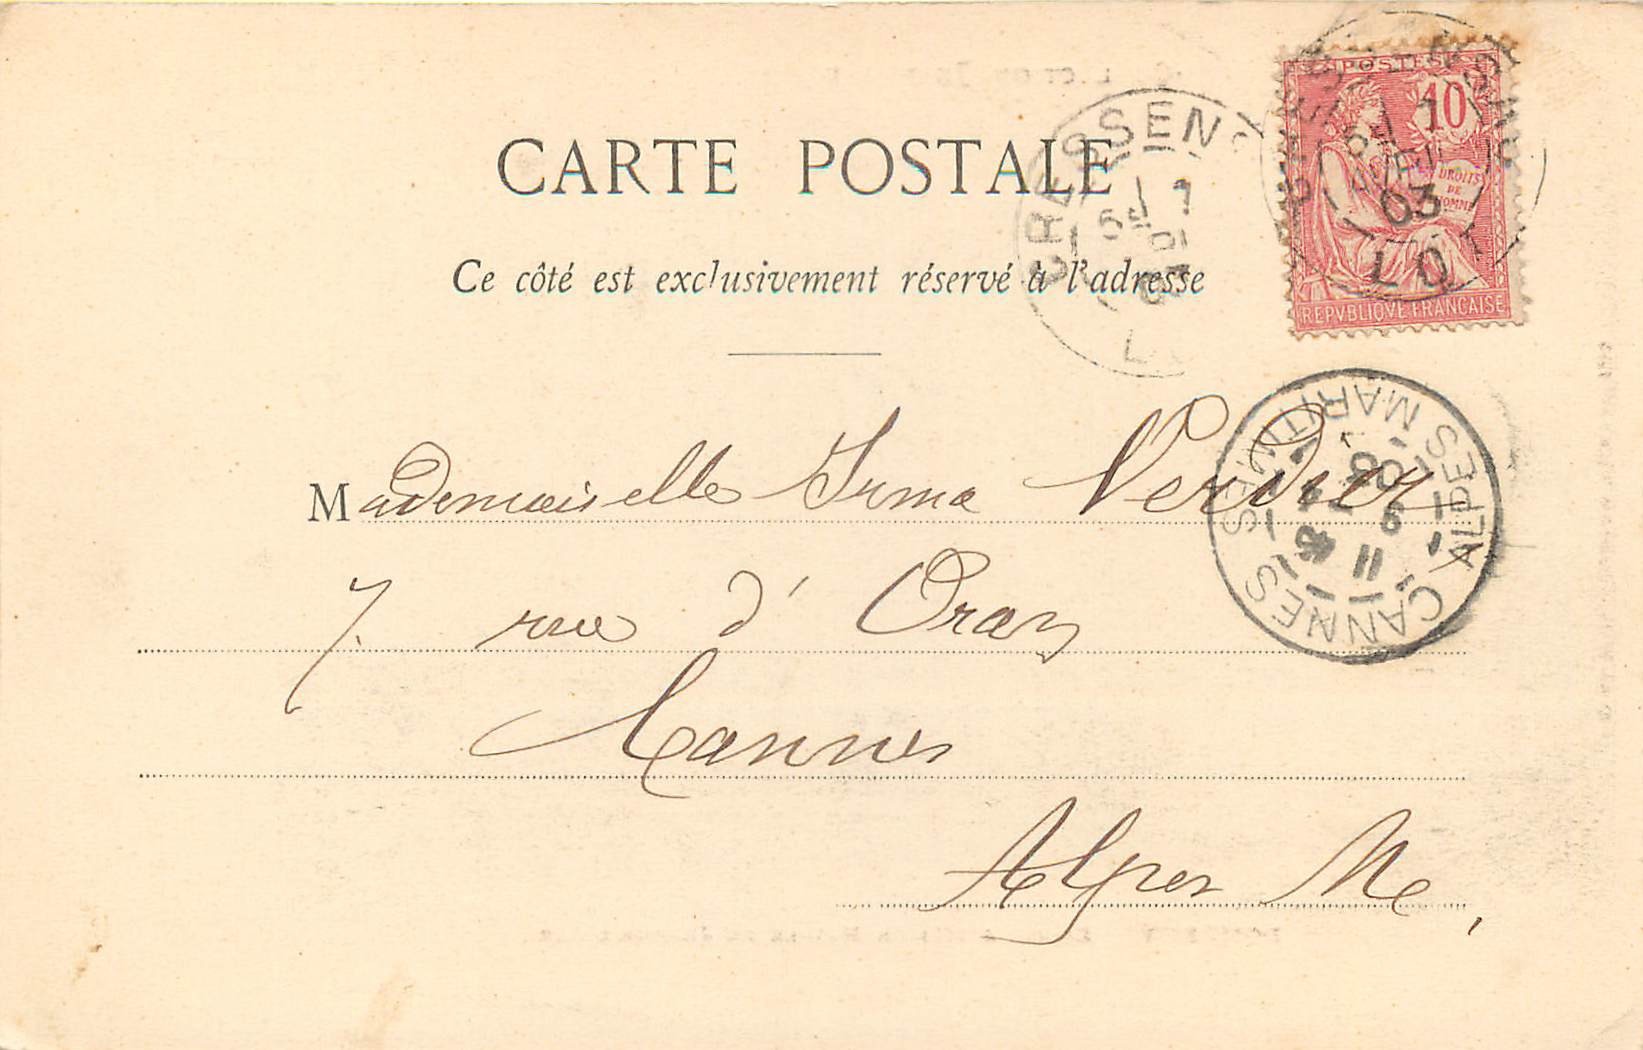 CARTE POSTALE
Ce côté est exclusivement réservé à l'adresse
POSTES
10
DROITS
DE
REPVBLIQVE FRANÇAISE
03
LOT
CANNES
ALPES MARITIMES
11
03
Mademoiselle Irma Verdier
7. rue d'Oran
Cannes
Alpes M.